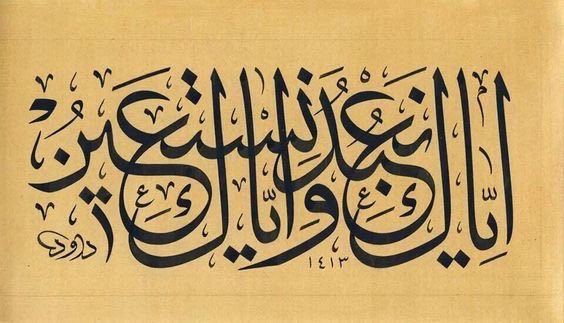 إِيَّاكَ نَعْبُدُ وَإِيَّاكَ نَسْتَعِينُ
١٤١٣
داود